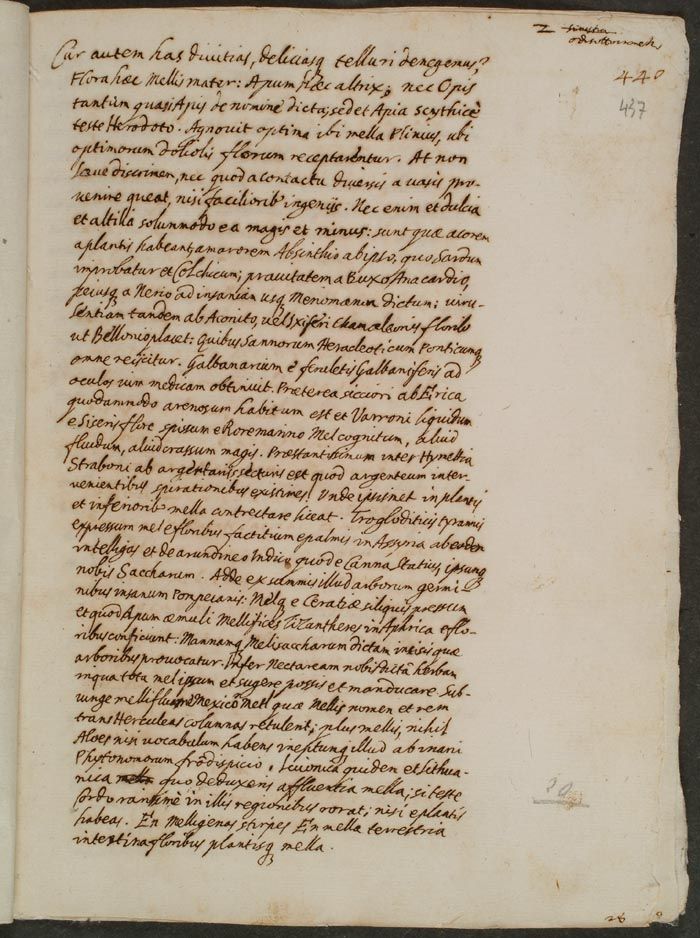 2
440
437
Cur autem has divitias, deliciasq telluri denegemus?
Flora hæc Mellis mater: Apum hæc altrix; nec Opis
tantum quasi Apis de nomine dicta; sed et Apia scythicè
teste Herodoto. Agnovit optina ibi mella Plinius, ubi
optimorum doliolis florum receptarentur. At non
læve discrimen, nec quod a contactu diversis a vasis pro-
venire queat, nisi facilioribus ingenijs. Nec enim et dulcia
et altilia solummodo ea magis et minus: sunt quæ acorem
a plantis habeant; amarorem Absinthio ab ipso, quo Sardum
improbatur et Colchicum; pravitatem a Buxo Anacardio,
peiusq a Nerio ad insaniam usq Menomænon dictum; viru-
lentiam tandem ab Aconito, vel Ixiferi Chamæleonis floribus
ut Bellonio placet: Quibus Sannorum Heracleoticum Ponticumq
omne reijcitur. Galbanarium è feruletis Galbaniferis ad
oculos vim medicam obtinuit. Præterea sicciori ab Erica
quodammodo arenosum habitum est et Varroni liquidum
e Siseris flore spissum e Roremarino Mel cognitum, aliud
fluidum, aliud crassum magis. Præstantissimum inter Hymettia
Straboni ab argentarijs secturis est quod argenteum inter-
venientibus spirationibus existimes. Unde ipsismet in plantis
et inferioribus mella contrectare liceat. Trogloditicis tyrannis
expressum mel e floribus factitium e palmis in Assyria ab eodem
intelligas et de arundine o Indicum quod e Canna Statius, ipsumq
nobis Saccharum. Adde ex summis illud arborum germi-
nibus insanum Pompeianis: Melq e Ceratiæ siliquis pressum
et quod Apum æmuli Mellifices Zizantheres in Aphrica e flo-
ribus conficiunt: Mannamq Melisaccharum dictam incisis quæ
arboribus provocatur. Infer Nectaream nobis dictā herbam
in qua tota mel ipsum et sugere possis et manducare. Sub-
iunge mellifluum è Mexico Metl quæ Mellis nomen et rem
trans Herculeas columnas retulent; plus mellis, nihil
Aloes nisi vocabulum habens ineptumq illud ab inani
Phytonomorum frōdispicio. Livonica quidem et Lithua-
nica quo deduxeris affluentia mella, si teste
Cordo rarissimè in illis regionibus rorat; nisi e plantis
habeas. En Melligenas stirpes En mella terrestria
intestina floribus plantisq mella.